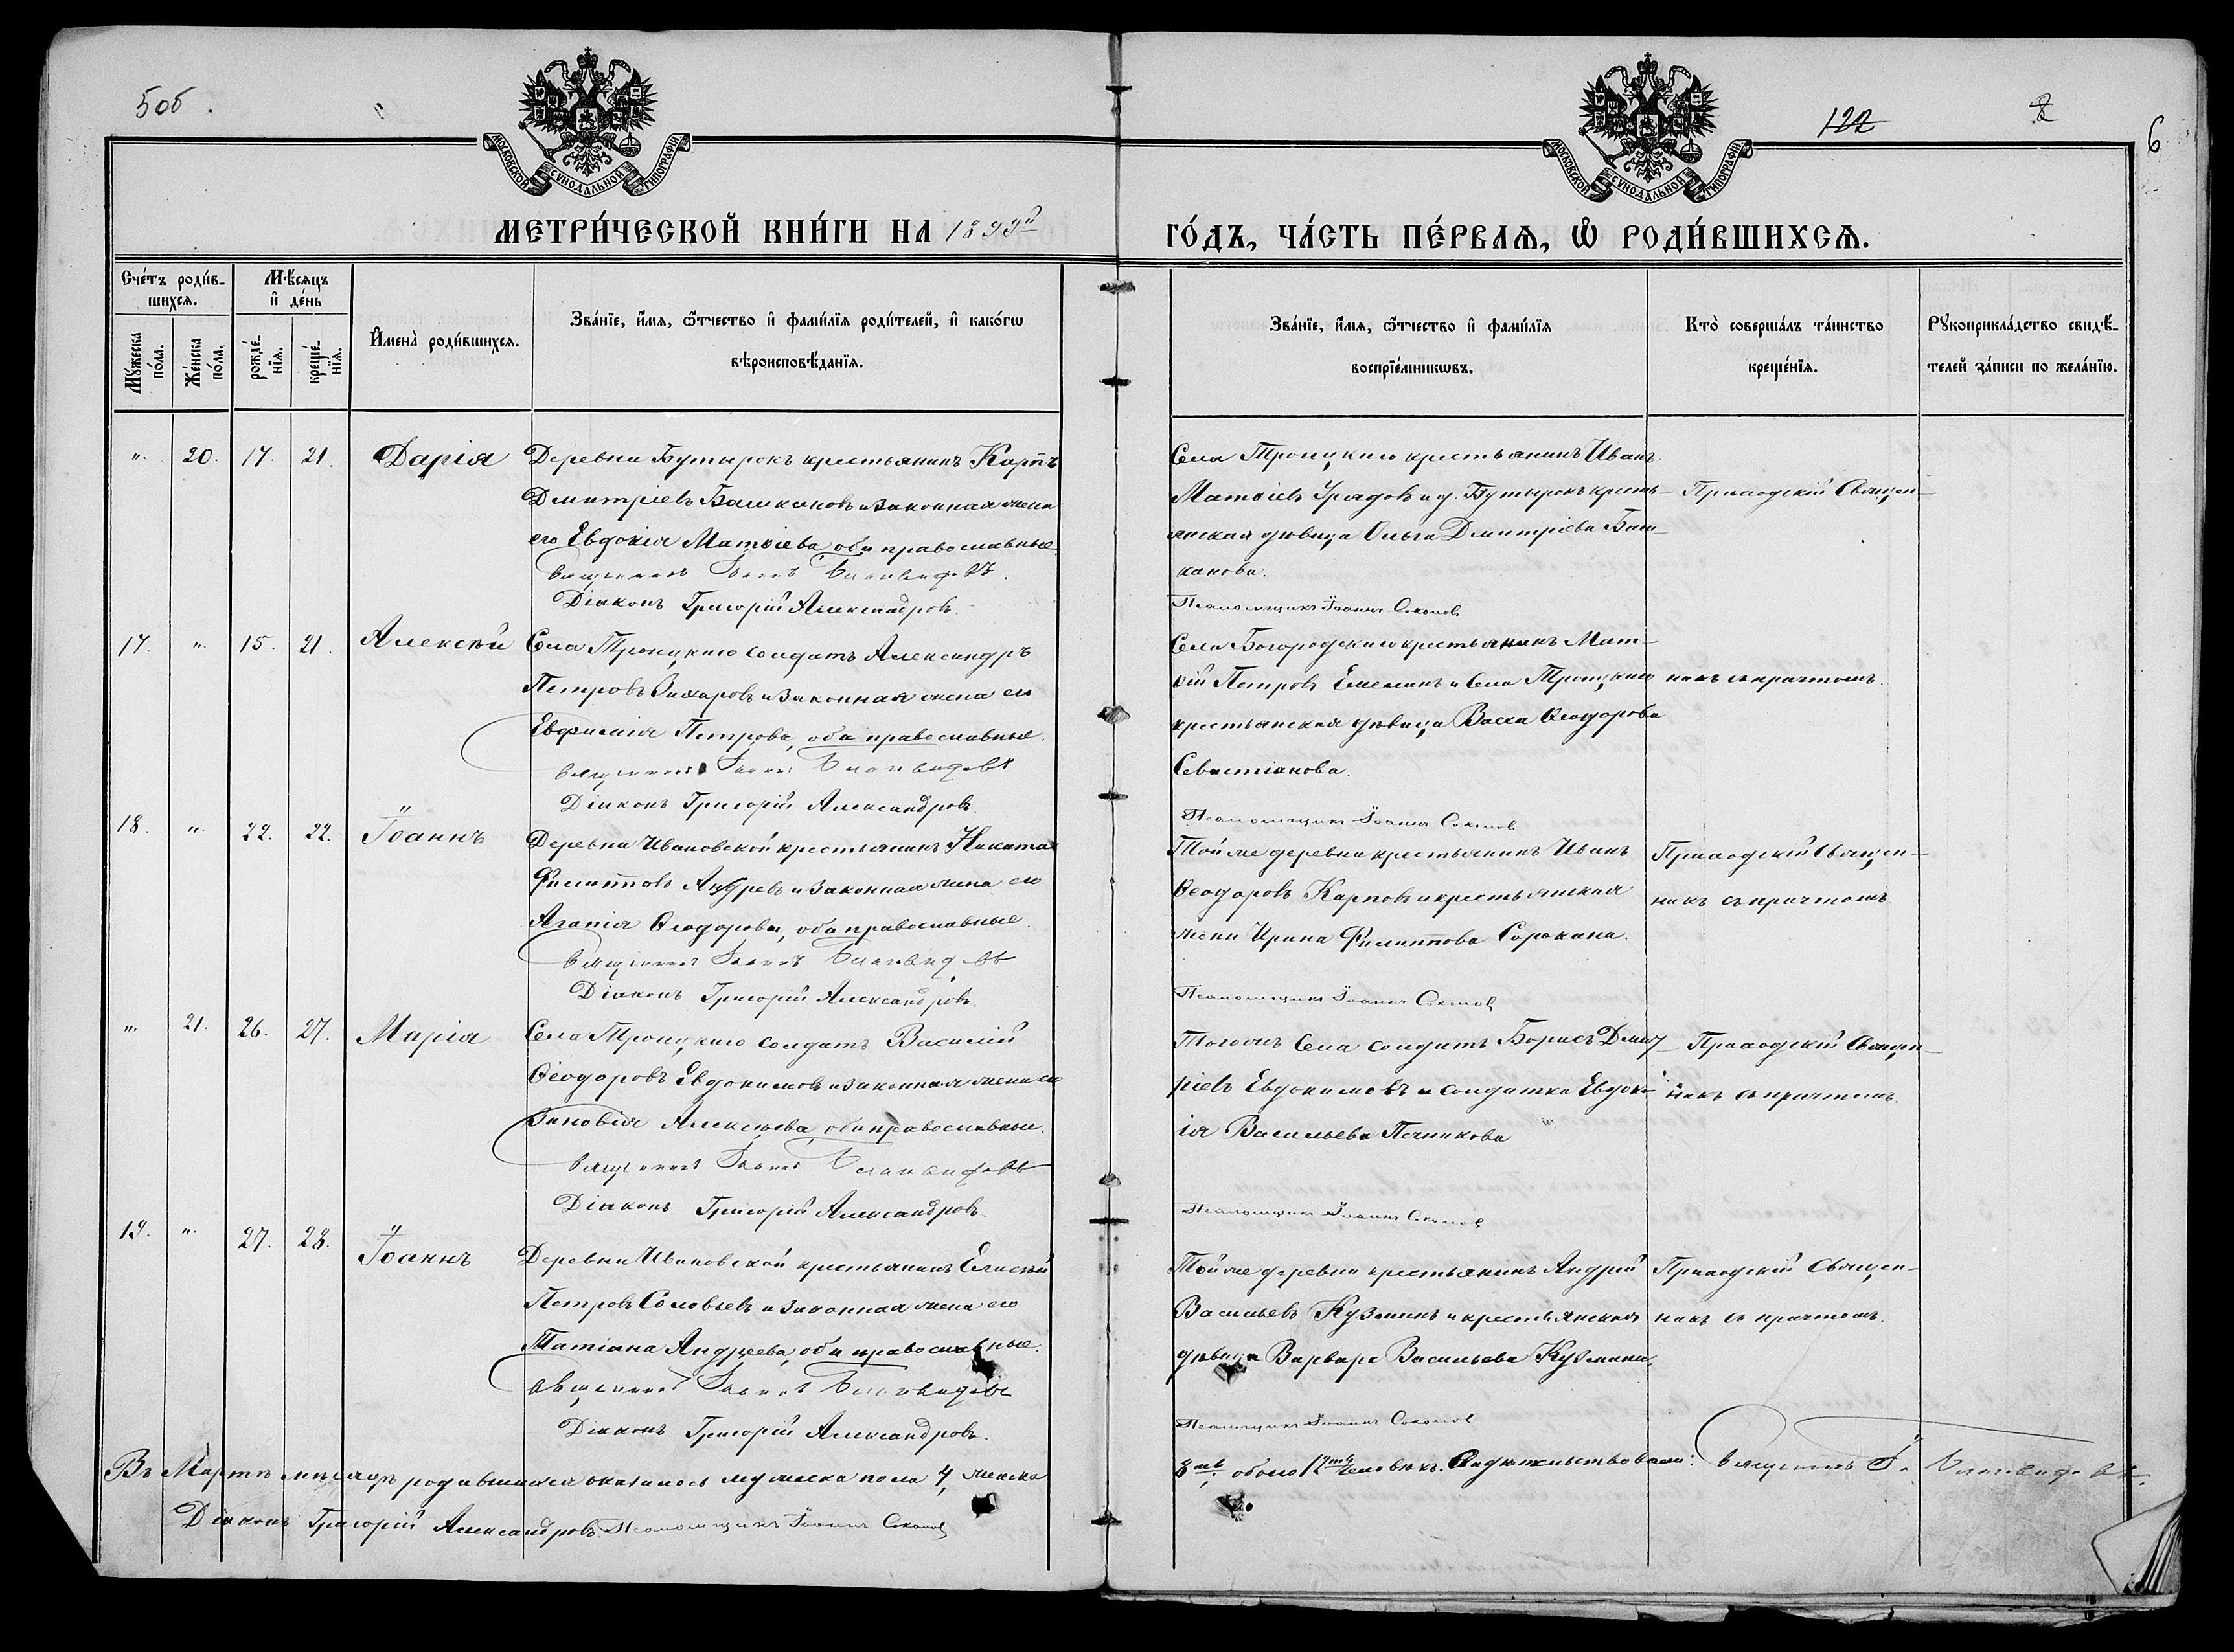 5об.
122
8
6
МОСКОВСКОЙ СѴНОДАЛЬНОЙ ТИПОГРАФІИ
МОСКОВСКОЙ СѴНОДАЛЬНОЙ ТИПОГРАФІИ
МЕТРИ́ЧЕСКОЙ КНИ́ГИ НА 1899й
ГО́ДЪ, ЧА́СТЬ ПЕ́РВАѦ, Ѽ РОДИ́ВШИХСѦ.
Сче́тъ роди́в-
шихсѧ.
Мѣ́сѧцъ
и҆ де́нь
Мꙋ́жеска
по́ла.
Же́нска
по́ла.
рожде́-
нїѧ.
креще́-
нїѧ.
И҆мена̀ роди́вшихсѧ.
Зва́нїе, и҆́мѧ, ѻ҆́тчество и҆ фами́лїѧ роди́телей, и҆ како́гѡ
вѣроисповѣ́данїѧ.
Зва́нїе, и҆́мѧ, ѻ҆́тчество и҆ фами́лїѧ
воспрїе́мникѡвъ.
Кто̀ соверша́лъ та́инство
креще́нїѧ.
Рꙋкоприкла́дство свидѣ́-
телей за́писи по жела́нїю.
". 20. 17. 21. Дарія Деревни Бутырокъ крестьянинъ Карпъ
Дмитріевъ Башкановъ и законная жена
его Евдокія Матѳіева, оба православные.
Священникъ Іоаннъ Благовидовъ.
Діаконъ Григорій Александровъ.
Села Троицкаго крестьянинъ Иванъ
Матѳіевъ и д. Бутырокъ кресть-
янская дѣвица Ольга Дмитріева Баш-
канова.
Псаломщикъ Іоаннъ Соколовъ
Приходскій Священ-
17. ". 15. 21. Алексѣй Села Троицкаго солдатъ Александръ
Петровъ Захаровъ и законная жена его
Евфимія Петрова, оба православные.
Священникъ Іоаннъ Благовидовъ
Діаконъ Григорій Александровъ.
Села Богородскаго крестьянинъ Мат-
ѳій Петровъ и Села Троицкаго
крестьянская дѣвица Васса Ѳеодорова
Севастіанова.
Псаломщикъ Іоаннъ Соколовъ
никъ съ причтомъ.
18. ". 22. 22. Іоаннъ Деревни Ивановской крестьянинъ Никита
Филипповъ Андреевъ и законная жена его
Агапія Ѳеодорова, оба православные.
Священникъ Іоаннъ Благовидовъ
Діаконъ Григорій Александровъ.
Той же деревни крестьянинъ Иванъ
Ѳеодоровъ Карповъ и крестьянская
жена Ирина Филиппова Сорокина.
Псаломщикъ Іоаннъ Соколовъ
Приходскій Священ-
никъ съ причтомъ
". 21. 26. 27. Марія Села Троицкаго солдатъ Василій
Ѳеодоровъ Евдокимовъ и законная жена его
Зиновія Алексѣева, оба православные.
Священникъ Іоаннъ Благовидовъ
Діаконъ Григорій Александровъ.
Того же Села солдатъ Борисъ Дмит-
ріевъ Евдокимовъ и солдатка Евдок-
ія Васильева
Псаломщикъ Іоаннъ Соколовъ
Приходскій Священ-
никъ съ причтомъ.
19. ". 27. 28. Іоаннъ Деревни Ивановской крестьянинъ Елисѣй
Петровъ Соловьевъ и законная жена его
Татіана Андреева, оба православные.
Священникъ Іоаннъ Благовидовъ
Діаконъ Григорій Александровъ.
Той же деревни крестьянинъ Андрей
Васильевъ Кузминъ и крестьянская
дѣвица Варвара Васильева Кузмина.
Псаломщикъ Іоаннъ Соколовъ
Приходскій Священ-
никъ съ причтомъ.
Въ Мартѣ мѣсяцѣ родившихся оказалось мужеска пола 4, женска
8мь, обоего 12ть человѣкъ. Свидѣтельствовали: Священникъ І. Благовидовъ.
Діаконъ Григорій Александровъ. Псаломщикъ Іоаннъ Соколовъ